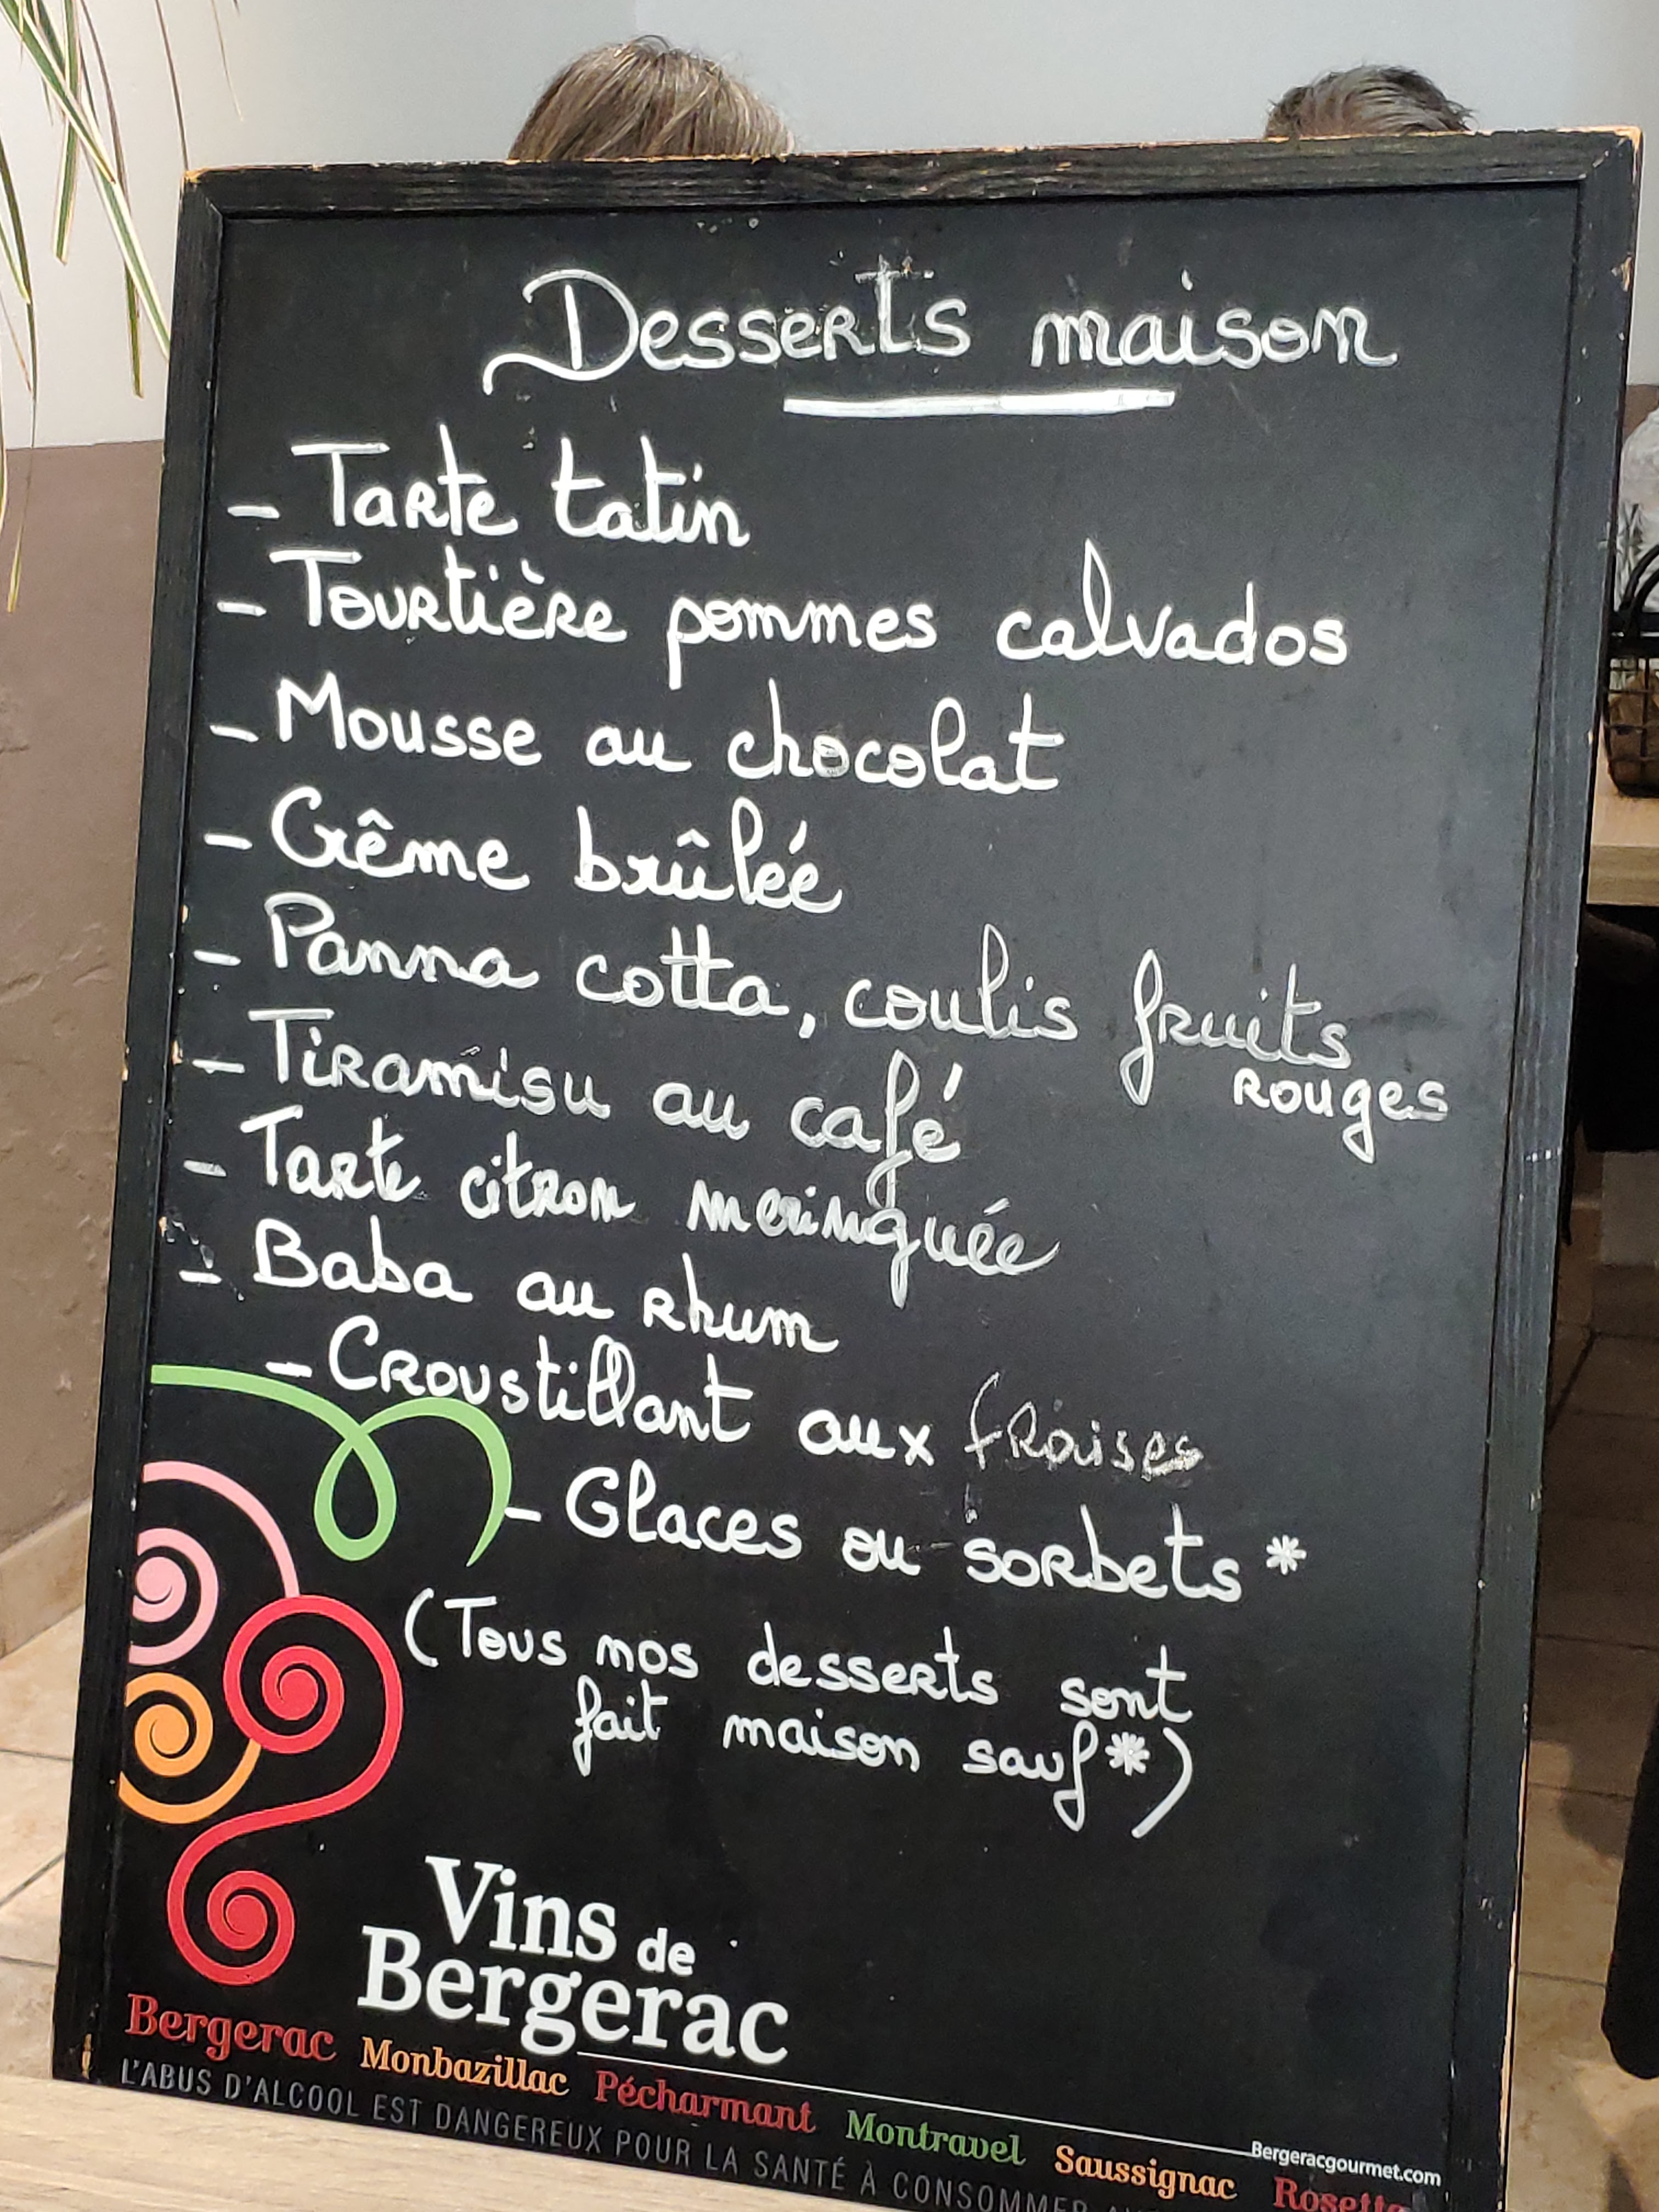 Desserts maison
- Tarte tatin
- Tourtière pommes calvados
- Mousse au chocolat
- Crême brûlée
- Panna cotta, coulis fruits
rouges
- Tiramisu au café
- Tarte citron meringuée
- Baba au rhum
- Croustillant aux fraises
- Glaces ou sorbets *
(Tous mos desserts sont
fait maison sauf*)
Vins de
Bergerac
Bergerac Monbazillac Pécharmant Montravel Saussignac Rosette
Bergeracgourmet.com
L'ABUS D'ALCOOL EST DANGEREUX POUR LA SANTÉ À CONSOMMER